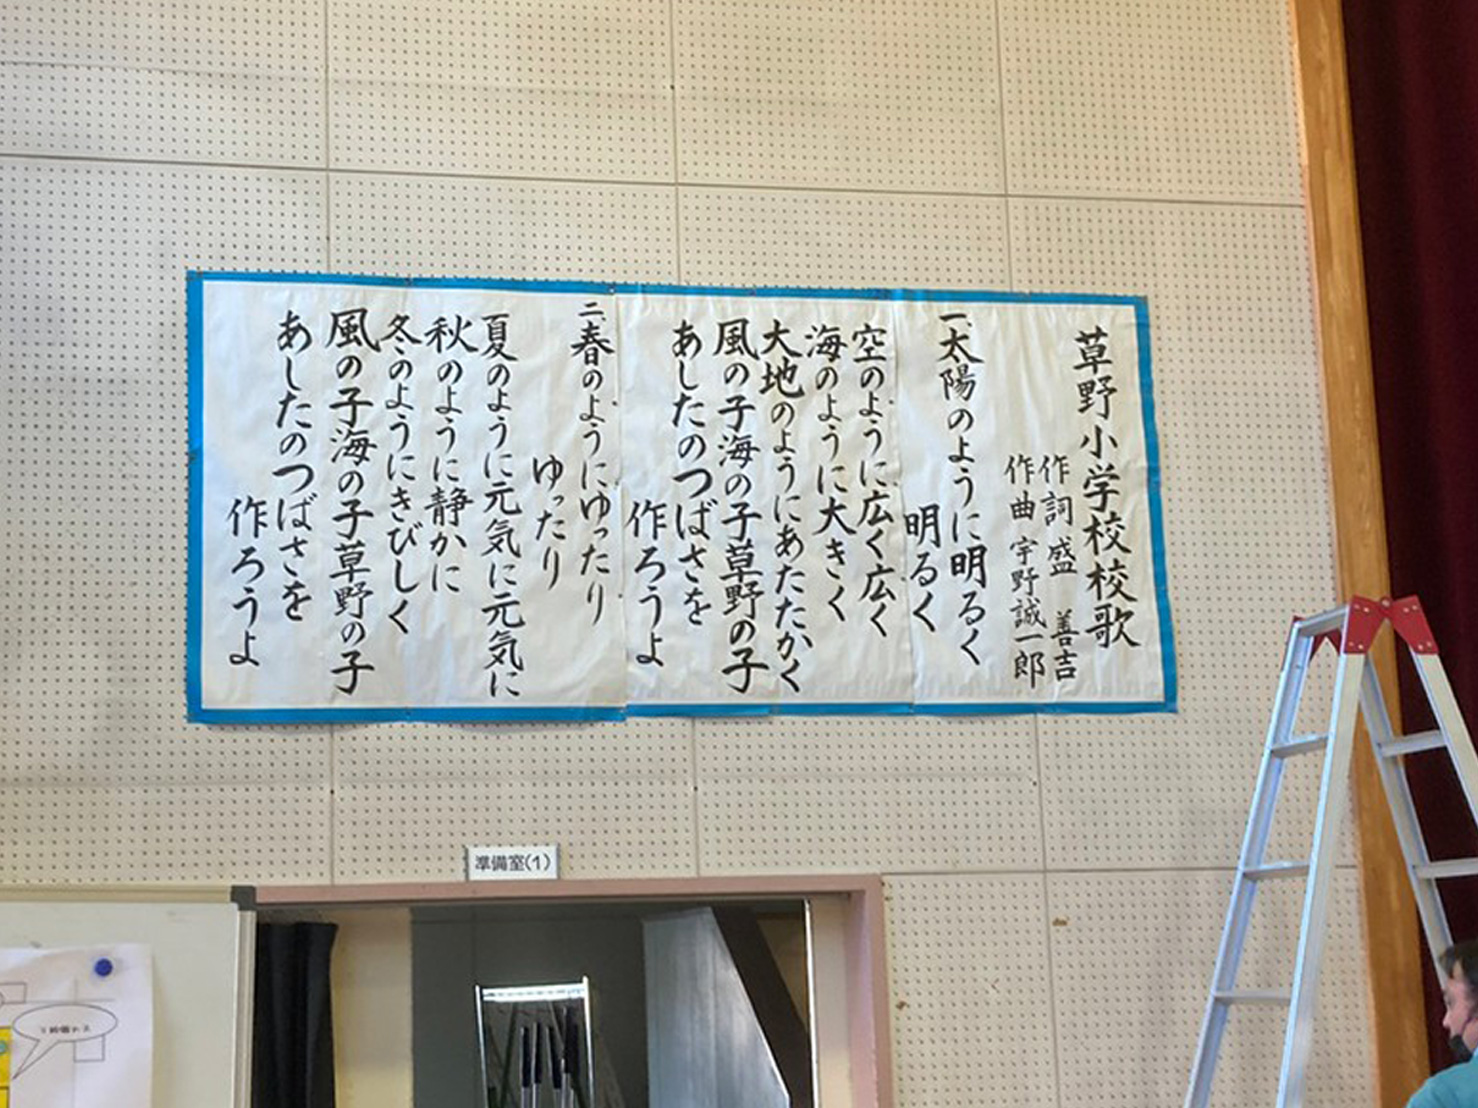 草野小学校校歌
作詞 盛 善吉
作曲 宇野誠一郎
一、太陽のように明るく
明るく
空のように広く広く
海のように大きく
大地のようにあたたかく
風の子海の子草野の子
あしたのつばさを
作ろうよ
二、春のようにゆったり
ゆったり
夏のように元気に元気に
秋のように静かに
冬のようにきびしく
風の子海の子草野の子
あしたのつばさを
作ろうよ
準備室(1)